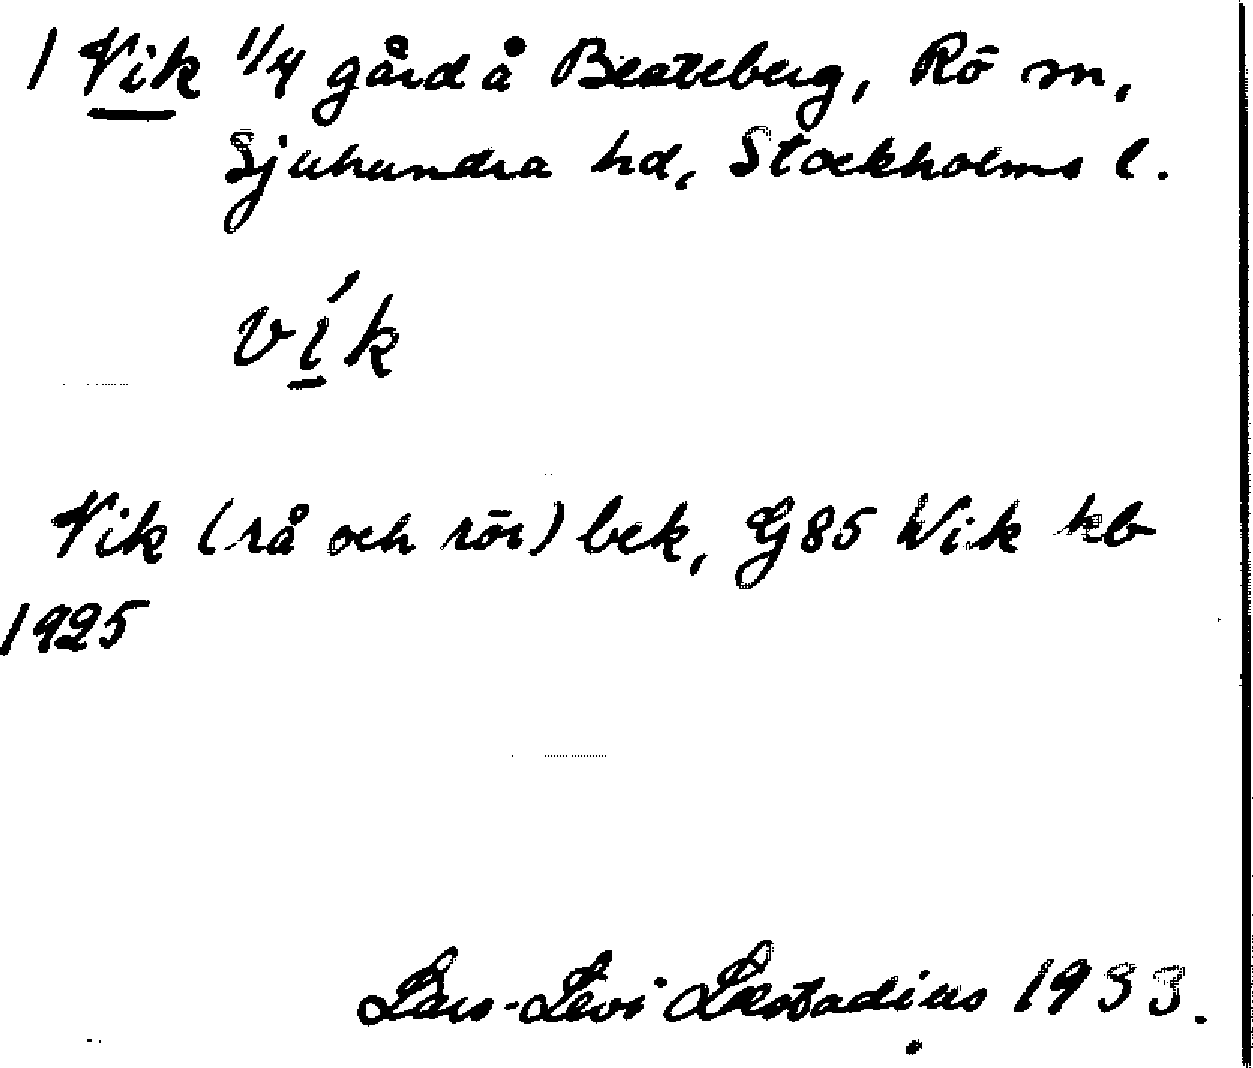 1 Vik 1/4 gård å Beateberg, Rö sn,
Sjuhundra hd, Stockholms l.
vík
Vik (rå och rör) bek, G85 Wik kb
1925
Lars-Levi Læstadius 1933.